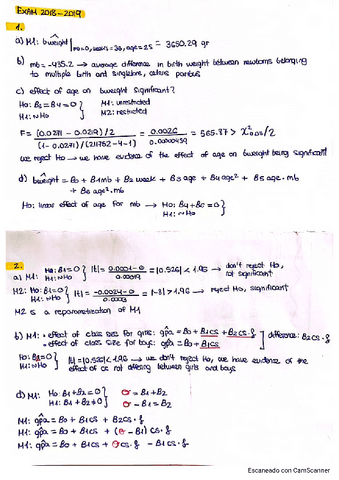 EXAM 2018-2019
1.
a) M1: bweight | mb=0, weeks=36, age=25 = 3650.29 gr
b) mb=-435.2 → average difference in birth weight between newborns belonging
to multiple birth and singletons, ceteris paribus
c) effect of age on bweight significant?
H0: B3=B4=0 } M1: unrestricted
H1: ∼H0 M2: restricted
F = = 565.87 >
we reject Ho → we have evidence of the effect of age on bweight being significant
d) bweight = B0 + B1mb + B2 week + B3 age + B4 age² + B5 age·mb
+ B6 age²·mb
Ho: linear effect of age for mb → Ho: B4+B6=0 }
H1: ∼Ho
2.
a) M1: Ho: B1=0 } |t| = = |0.526| < 1.96 → don't reject Ho,
H1: ∼Ho not significant
M2: Ho: B1=0 } |t| = = |-3| > 1.96 → reject Ho, significant
H1: ∼Ho
M2 is a reparametrization of M1
b) M1: • effect of class size for girls: gpa = B0 + B1cs + B2cs·f ] difference: B2cs·f
• effect of class size for boys: gpa = B0 + B1cs
Ho: B2=0 } |t| = |0.526| < 1.96 → we don't reject Ho, we have evidence of the
H1: ∼Ho effect of cs not differing between girls and boys
d) M1: Ho: B1+B2=0 } σ = B1+B2
H1: B1+B2≠0 σ-B1 = B2
M1: gpa = B0 + B1cs + B2cs·f
M1: gpa = B0 + B1cs + (σ-B1) cs·f
M1: gpa = B0 + B1cs + σcs·f - B1cs·f
Escaneado con CamScanner